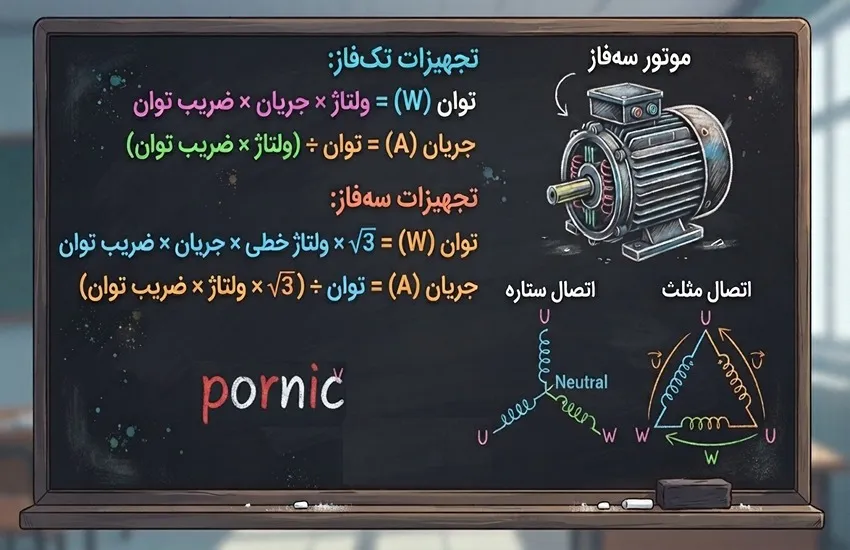 تجهیزات تک‌فاز:
توان (W) = ولتاژ × جریان × ضریب توان
جریان (A) = توان ÷ (ولتاژ × ضریب توان)
تجهیزات سه‌فاز:
توان (W) = √3 × ولتاژ خطی × جریان × ضریب توان
جریان (A) = توان ÷ (√3 × ولتاژ × ضریب توان)
pornic
موتور سه‌فاز
اتصال ستاره
U
Neutral
U
W
اتصال مثلث
U
W
U
W